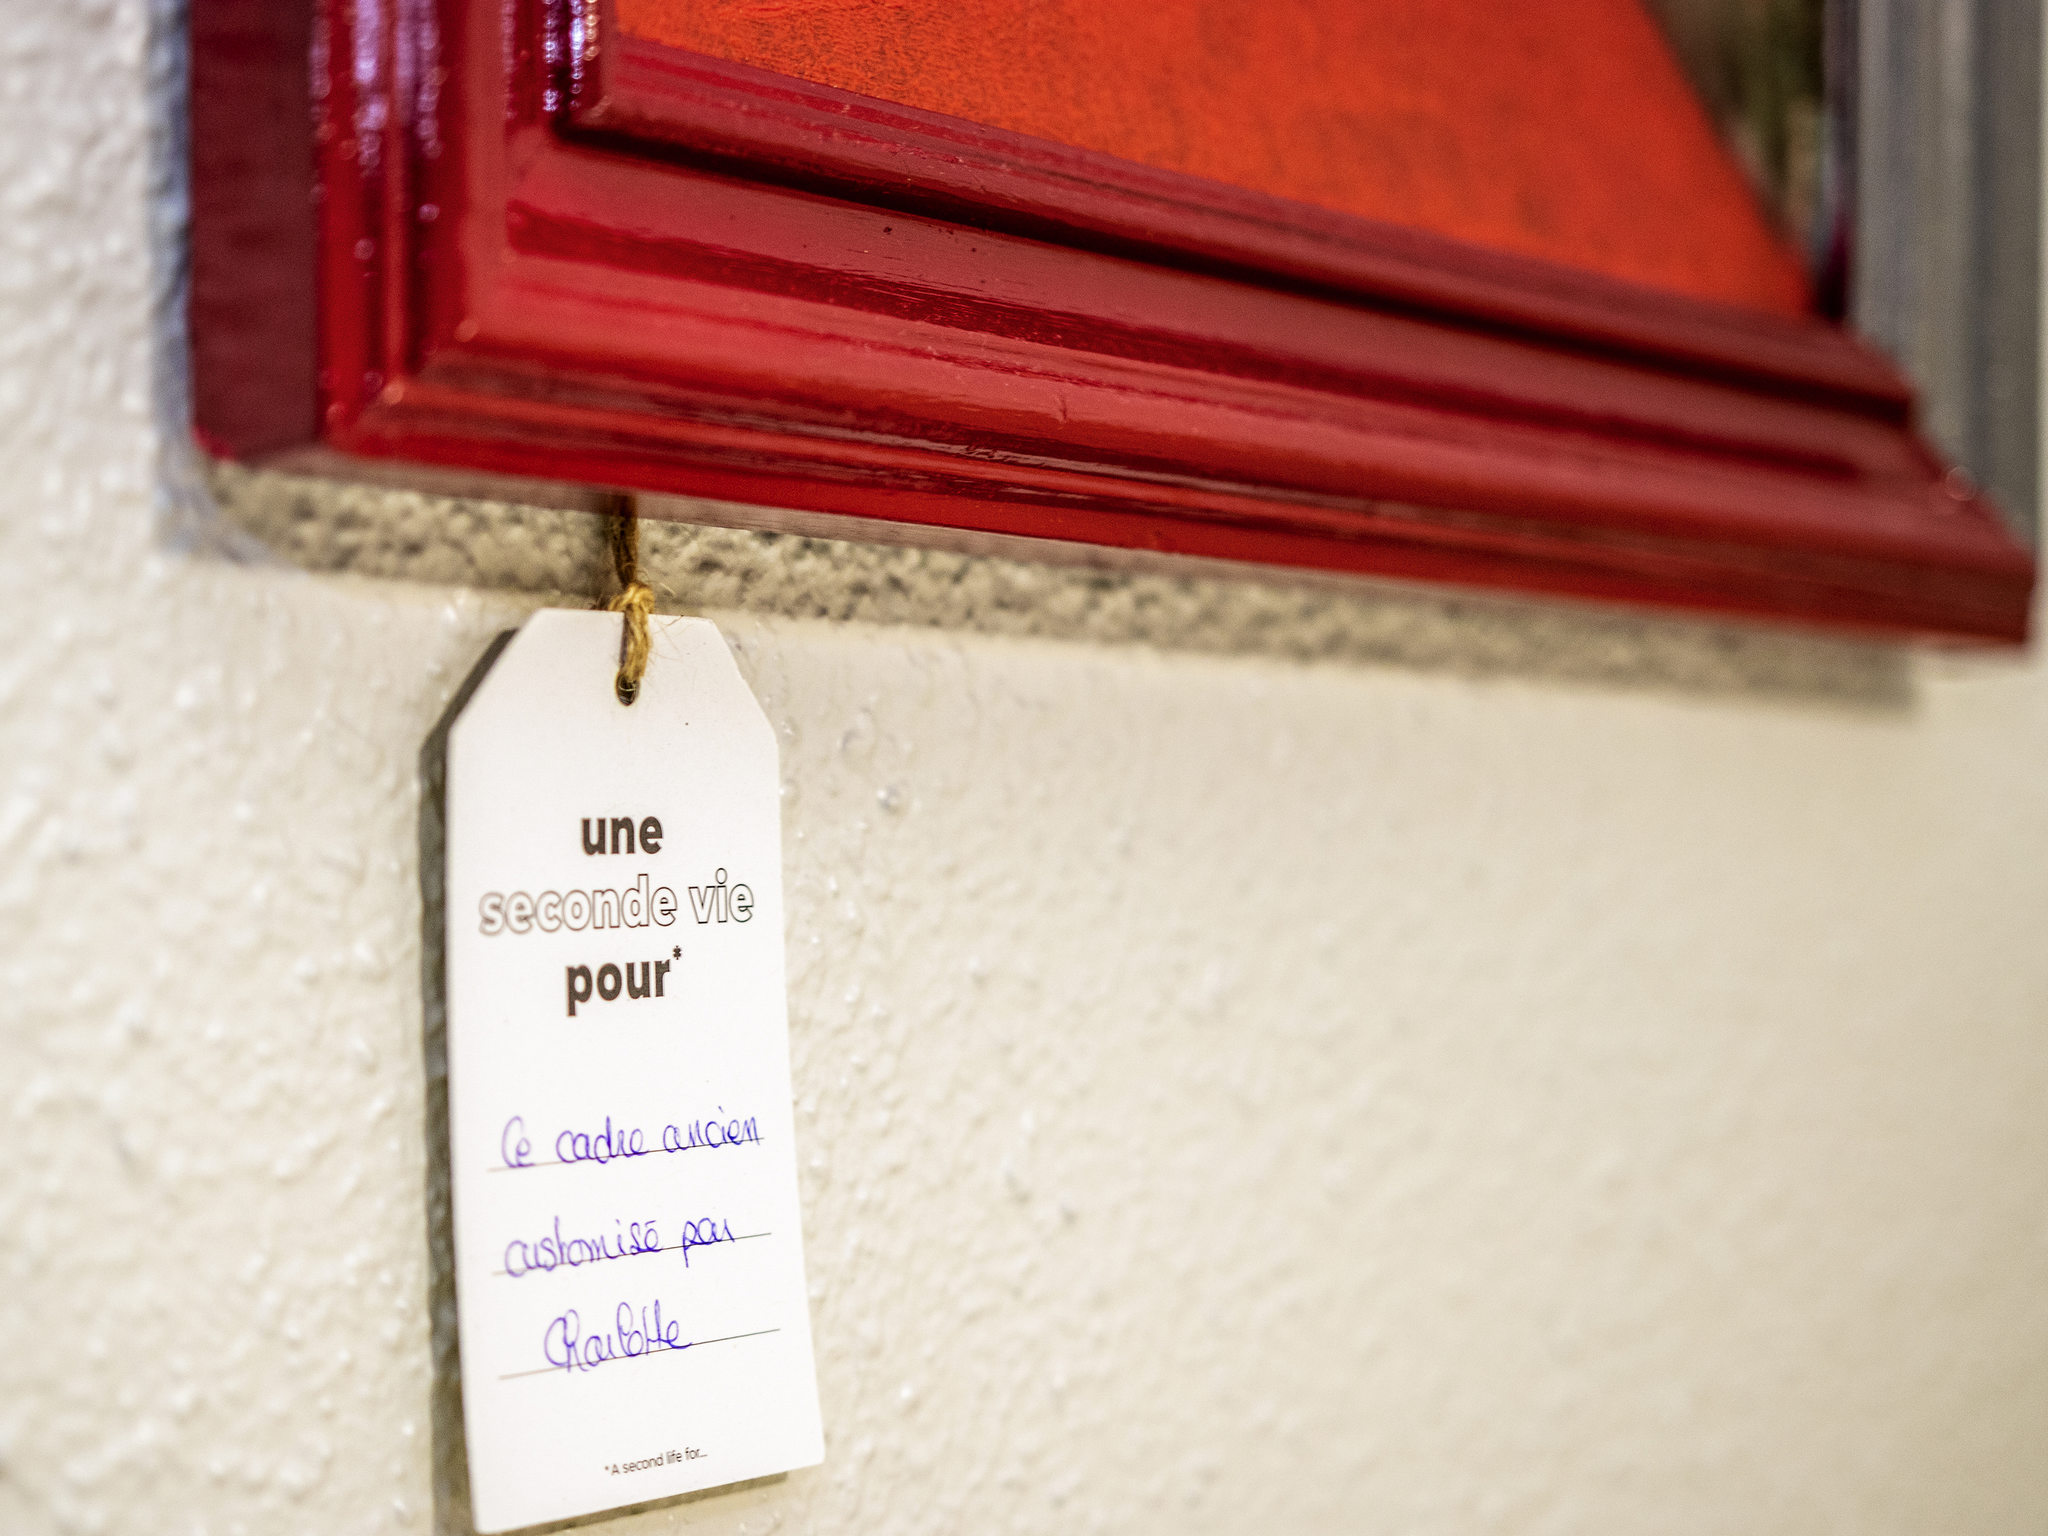 une
seconde vie
pour*
Ce cadre ancien
customisé par
Charlotte
*A second life for...